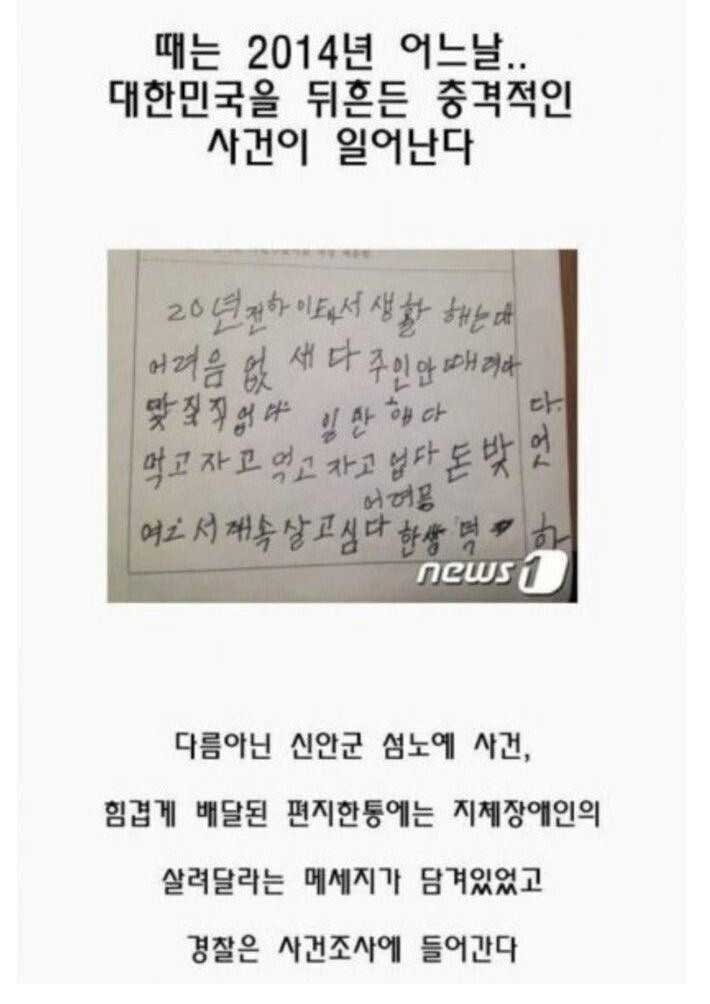 때는 2014년 어느날..
대한민국을 뒤흔든 충격적인
사건이 일어난다
20년전하이도에서 생활 해는데
어려음 없 새다 주인안때려다
맞질직 업다 일만 해다
먹고 자고 먹고 자고 업다 돈 밪 엇다.
어려믕
여그서 개속살고심다 한쌍 떡 하
news1
다름아닌 신안군 섬노예 사건,
힘겹게 배달된 편지한통에는 지체장애인의
살려달라는 메세지가 담겨있었고
경찰은 사건조사에 들어간다